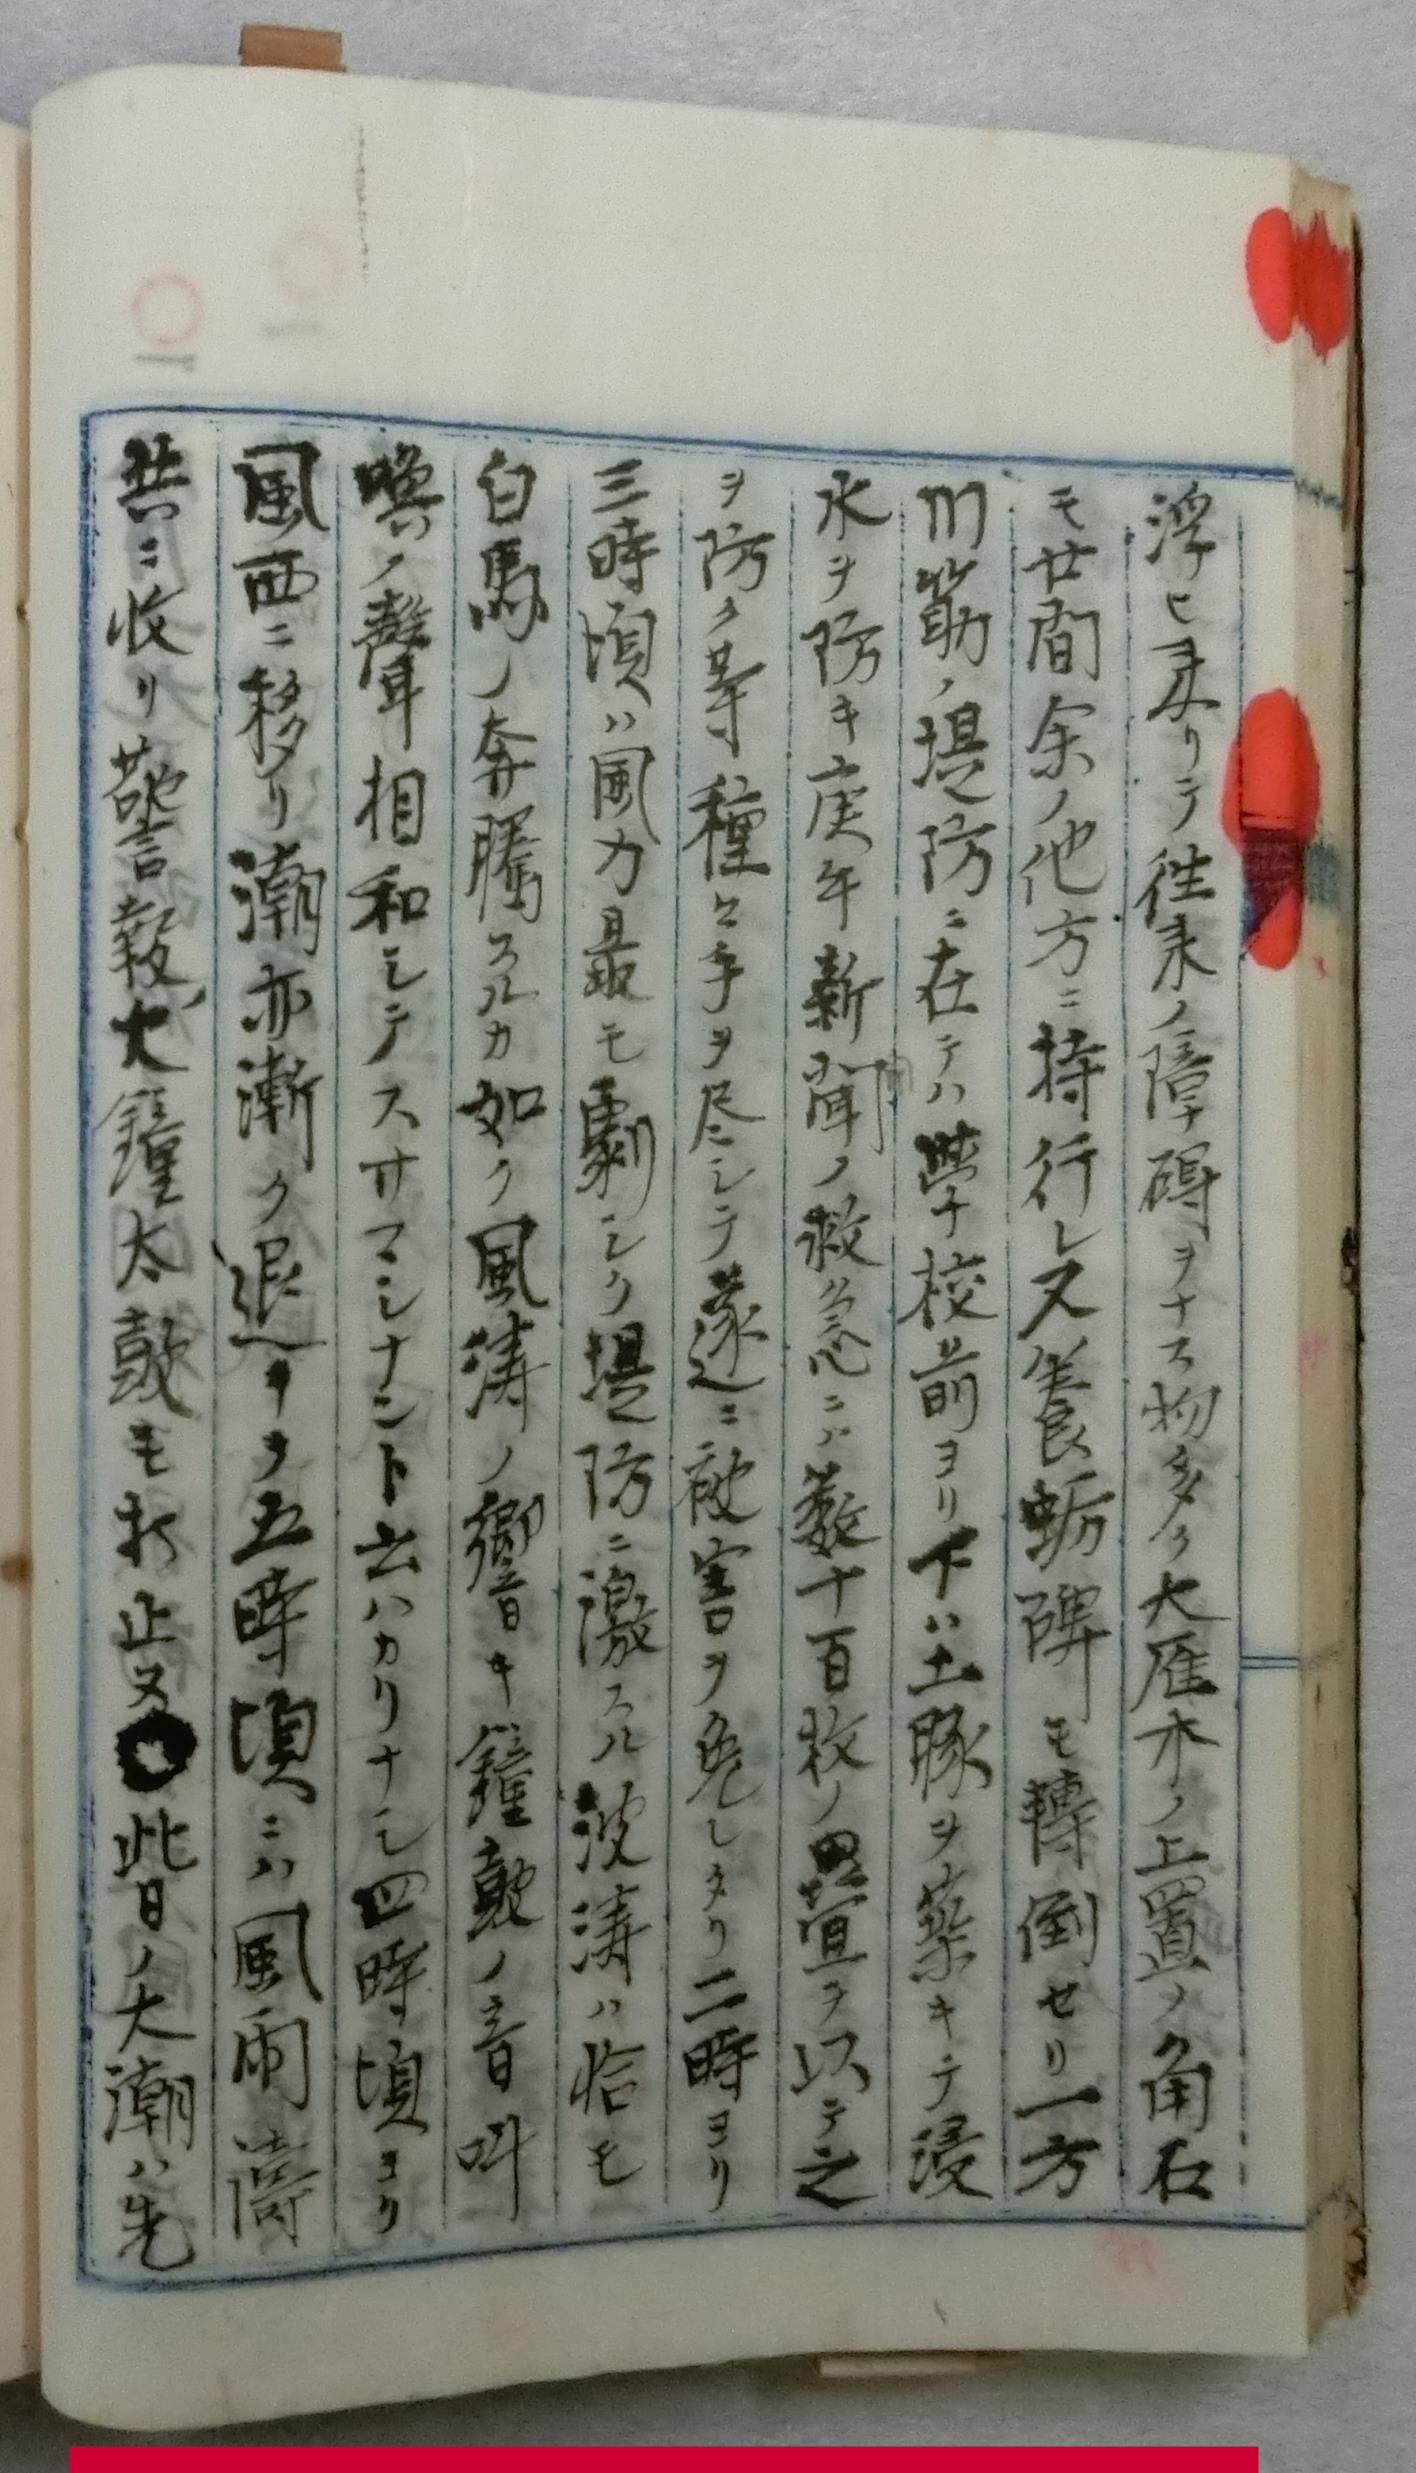 浮ヒ来リテ往来ノ障碍ヲナス物多ク大雁木ノ上置ノ角石
モ廿間余ノ他方ニ持行レ又養蛎碑モ轉倒セリ一方
川筋ノ堤防ニ在テハ學校前ヨリ下ハ土豚ヲ築キテ浸
水ヲ防キ庚午新聞ノ救急ニハ数十百枚ノ畳ヲ以テ之
ヲ防ク等種々手ヲ尽シテ遂ニ被害ヲ免レタリ二時ヨリ
三時頃ハ風力最モ劇シク堤防ニ激スル波濤ハ恰モ
白馬ノ奔騰スルカ如ク風濤ノ響キ鐘鼓ノ音叫
喚ノ聲相和シテスサマシナント云ハカリナシ四時頃ヨリ
風西ニ移リ潮亦漸ク退キヲ五時頃ニハ風雨濤
共ニ收リ警報ノ火鐘太鼓モ打止又此日ノ大潮ハ先